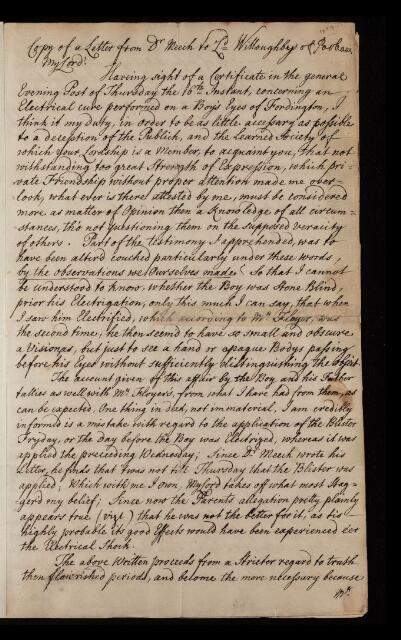 Copy of a Letter from Dr Meech to Ld Willoughbey of Parham
My Lord!
Having sight of a Certificate in the general
Evening Post of Thursday the 16th Instant, concerning an
Electrical cure performed on a Boys Eyes of Fordington, I
think it my duty, in order to be as little accessary as possible
to a deception of the Publick, and the Learned Society of
which your Lordship is a Member, to acquaint you, that not
withstanding too great Strength of Expression, which pri-
vate Friendship without proper attention made me over
look, what ever is there attested by me, must be considered
more as matter of Opinion then a Knowledge of all circum-
stances, tho not questioning them on the supposed veracity
of others. Part of the testimony I apprehended, was to
have been alter'd couched particularly under these words,
by the observations we Ourselves made. So that I cannot
be understood to know, whether the Boy was Stone Blind,
prior his Electrization; only this much I can say, that when
I saw him Electrified, which according to Mr Floyer, was
the second time, he then seem'd to have so small and obscure
a Vision, as, but just to see a hand or opaque Bodys passing
before his Eyes without sufficiently distinguishing the object.
The account given of this affair by the Boy and his Father
tallies as well with Mr Floyers, from what I have had from them, as
can be expected. One thing in deed, not immaterial, I am credibly
informed is a mistake with regard to the application of the Blister
Fryday, or the Day before the Boy was Electrized, whereas it was
applied the preceeding Wednesday; Since Dr Meech wrote his
Letter, he finds that twas not till Thursday that the Blister was
applied; Which with me I own, My Lord takes off what most Stag-
ger'd my belief; Since now the Parents allegation pretty plainly
appears true (vizt) that he was not the better for it; as tis
highly probable its good Effects would have been experienced ere
the Electrical Shock.
The above Written proceeds from a Stricter regard to truth
then flourished periods, and become the more necessary because